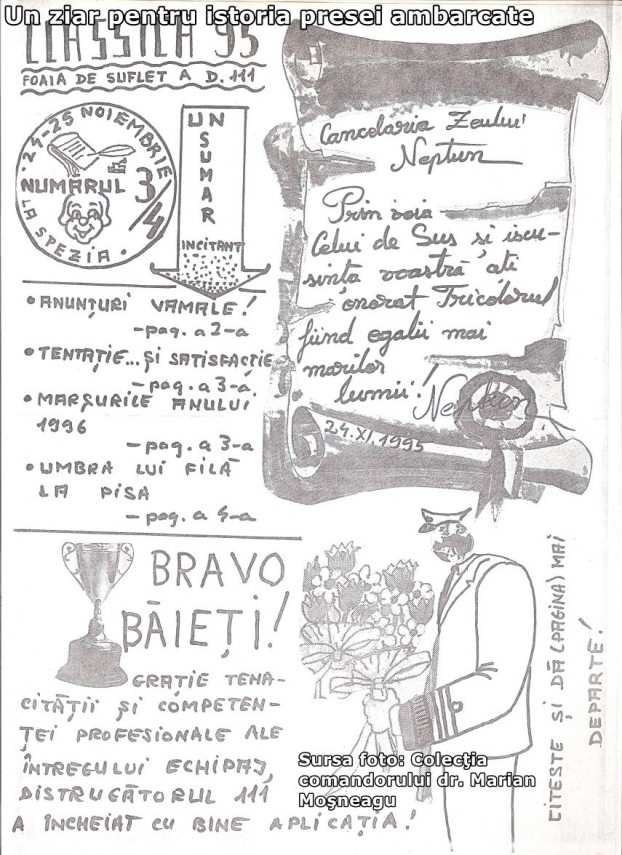 Un ziar pentru istoria presei ambarcate
CLASSICA 95
FOAIA DE SUFLET A D. 111
24-25 NOIEMBRIE
NUMĂRUL
3/4
LA SPEZIA
UN
SUMAR
INCITANT
• ANUNȚURI VAMALE!
- pag. a 2-a
• TENTAȚIE...ȘI SATISFACȚIE
- pag. a 3-a
• MARȘURILE ANULUI
1996
- pag. a 3-a
• UMBRA LUI FILĂ
LA PISA
- pag. a 4-a
Cancelaria Zeului
Neptun
Prin voia
Celui de Sus și iscu-
sința voastră ați
onorat Tricolorul
fiind egalii mai
marilor
lumii!
Neptun
24.XI.1995
BRAVO
BĂIEȚI!
GRAȚIE TENA-
CITĂȚII ȘI COMPETEN-
ȚEI PROFESIONALE ALE
ÎNTREGULUI ECHIPAJ,
DISTRUGĂTORUL 111
A ÎNCHEIAT CU BINE APLICAȚIA!
CITEȘTE ȘI DĂ (PAGINA) MAI
DEPARTE!
Sursa foto: Colecţia
comandorului dr. Marian
Moşneagu